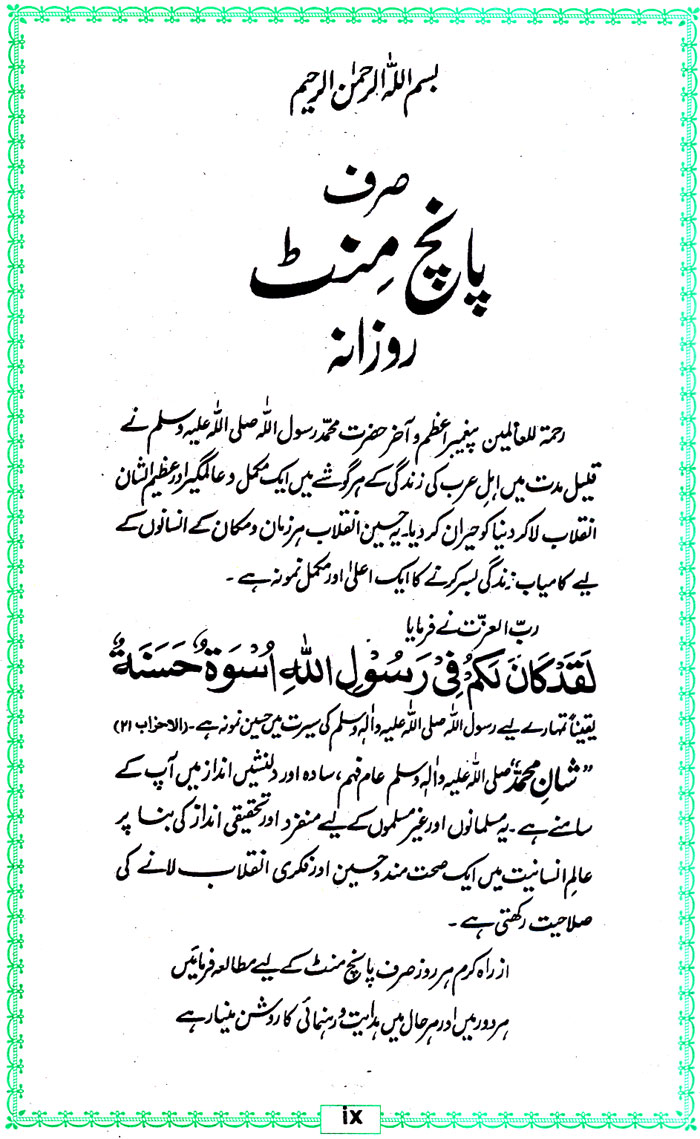 بسم اللہ الرحمٰن الرحیم
صرف
پانچ مِنٹ
روزانہ
رحمۃ للعالمین پیغمبر اعظم و آخر حضرت محمّد رسول اللہ صلی اللہ علیہ وسلم نے
قلیل مدت میں اہلِ عرب کی زندگی کے ہر گوشے میں ایک مکمل و عالمگیر اور عظیم الشان
انقلاب لا کر دنیا کو حیران کر دیا۔ یہ حسین انقلاب ہر زمان و مکان کے انسانوں کے
لیے کامیاب زندگی بسر کرنے کا ایک اعلیٰ اور مکمل نمونہ ہے۔
ربّ العزت نے فرمایا
لَقَدْ كَانَ لَكُمْ فِيْ رَسُوْلِ اللهِ اُسْوَةٌ حَسَنَةٌ
یقیناً تمہارے لیے رسول اللہ صلی اللہ علیہ والہٖ وسلم کی سیرت میں حسین نمونہ ہے۔ (الاحزاب ۲۱)
”شانِ محمّدؐ“ صلی اللہ علیہ والہٖ وسلم عام فہم، سادہ اور دلنشیں انداز میں آپ کے
سامنے ہے۔ یہ مسلمانوں اور غیر مسلموں کے لیے منفرد اور تحقیقی انداز کی بنا پر
عالمِ انسانیت میں ایک صحت مند و حسین اور فکری انقلاب لانے کی
صلاحیت رکھتی ہے۔
از راہ کرم ہر روز صرف پانچ منٹ کے لیے مطالعہ فرمائیں
ہر دور میں اور ہر حال میں ہدایت و رہنمائی کا روشن مینار ہے
ix